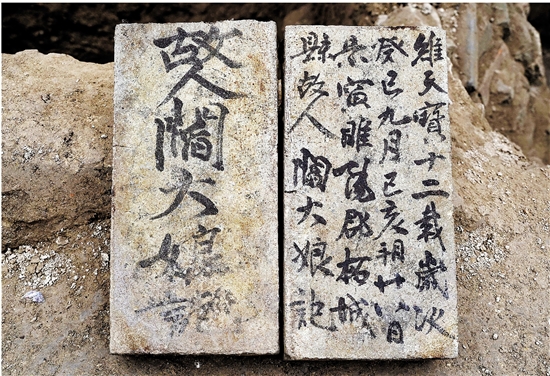 故人閻大娘
維天寶十二載歲次
癸巳九月己亥朔廿八日
景寅睢陽郡柘城
縣故人閻大娘記